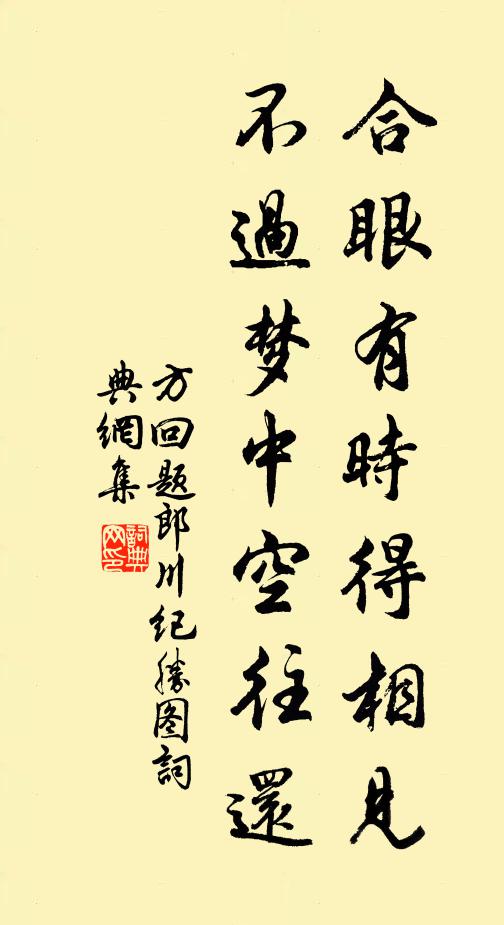 合眼有時得相見
不過梦中空往還
方回题郎川纪勝图詞
典網集
詞典网印